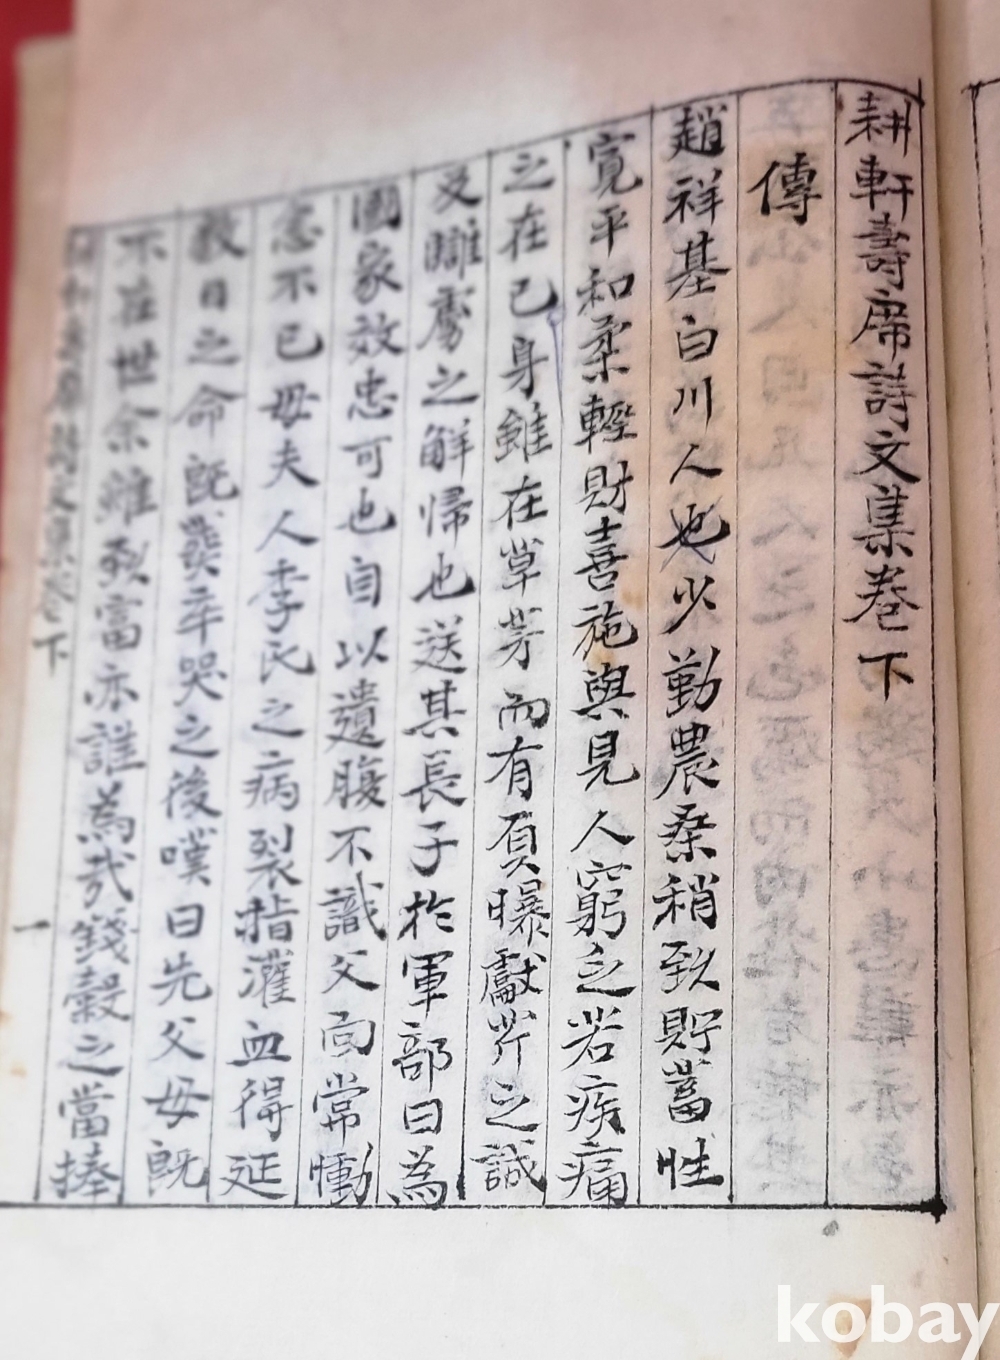 耕軒壽席詩文集卷下
傳
趙祥基白川人也少勤農桑稍致貯蓄性
寬平和柔輕財喜施與見人窮乏若疾痛
之在己身雖在草芥而有負曝獻芹之誠
及讎虜之解歸也送其長子於軍部曰為
國家效忠可也自以遺腹不識父面常慟
念不已母夫人李氏之病裂指灌血得延
數日之命既葬卒哭之後嘆曰先父母既
不在世余雖致富亦誰為哉錢穀之當捧
耕軒壽席詩文集卷下
一
kobay